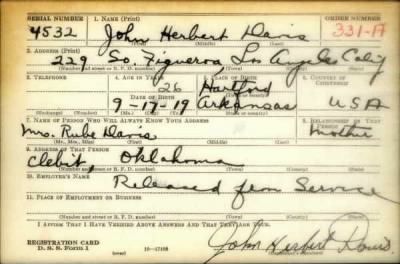 SERIAL NUMBER 1. NAME (Print) ORDER NUMBER
4532 John Herbert Davis 331-A
(First) (Middle) (Last)
2. ADDRESS (Print)
229 So. Figueroa Los Angeles Calif
(Number and street or R. F. D. number) (Town) (County) (State)
3. TELEPHONE 4. AGE IN YEARS 5. PLACE OF BIRTH 6. COUNTRY OF CITIZENSHIP
26 Hartford
DATE OF BIRTH
9-17-19 Arkansas USA
7. NAME OF PERSON WHO WILL ALWAYS KNOW YOUR ADDRESS 8. RELATIONSHIP OF THAT PERSON
Mrs. Rube Davis Mother
(Mr., Mrs., Miss) (First) (Middle) (Last)
9. ADDRESS OF THAT PERSON
Clebit, Oklahoma
(Number and street or R. F. D. number) (Town) (County) (State)
10. EMPLOYER'S NAME
Released from Service
11. PLACE OF EMPLOYMENT OR BUSINESS
(Number and street or R. F. D. number) (Town) (County) (State)
I AFFIRM THAT I HAVE VERIFIED ABOVE ANSWERS AND THAT THEY ARE TRUE.
REGISTRATION CARD
D. S. S. Form 1 16-17105 John Herbert Davis